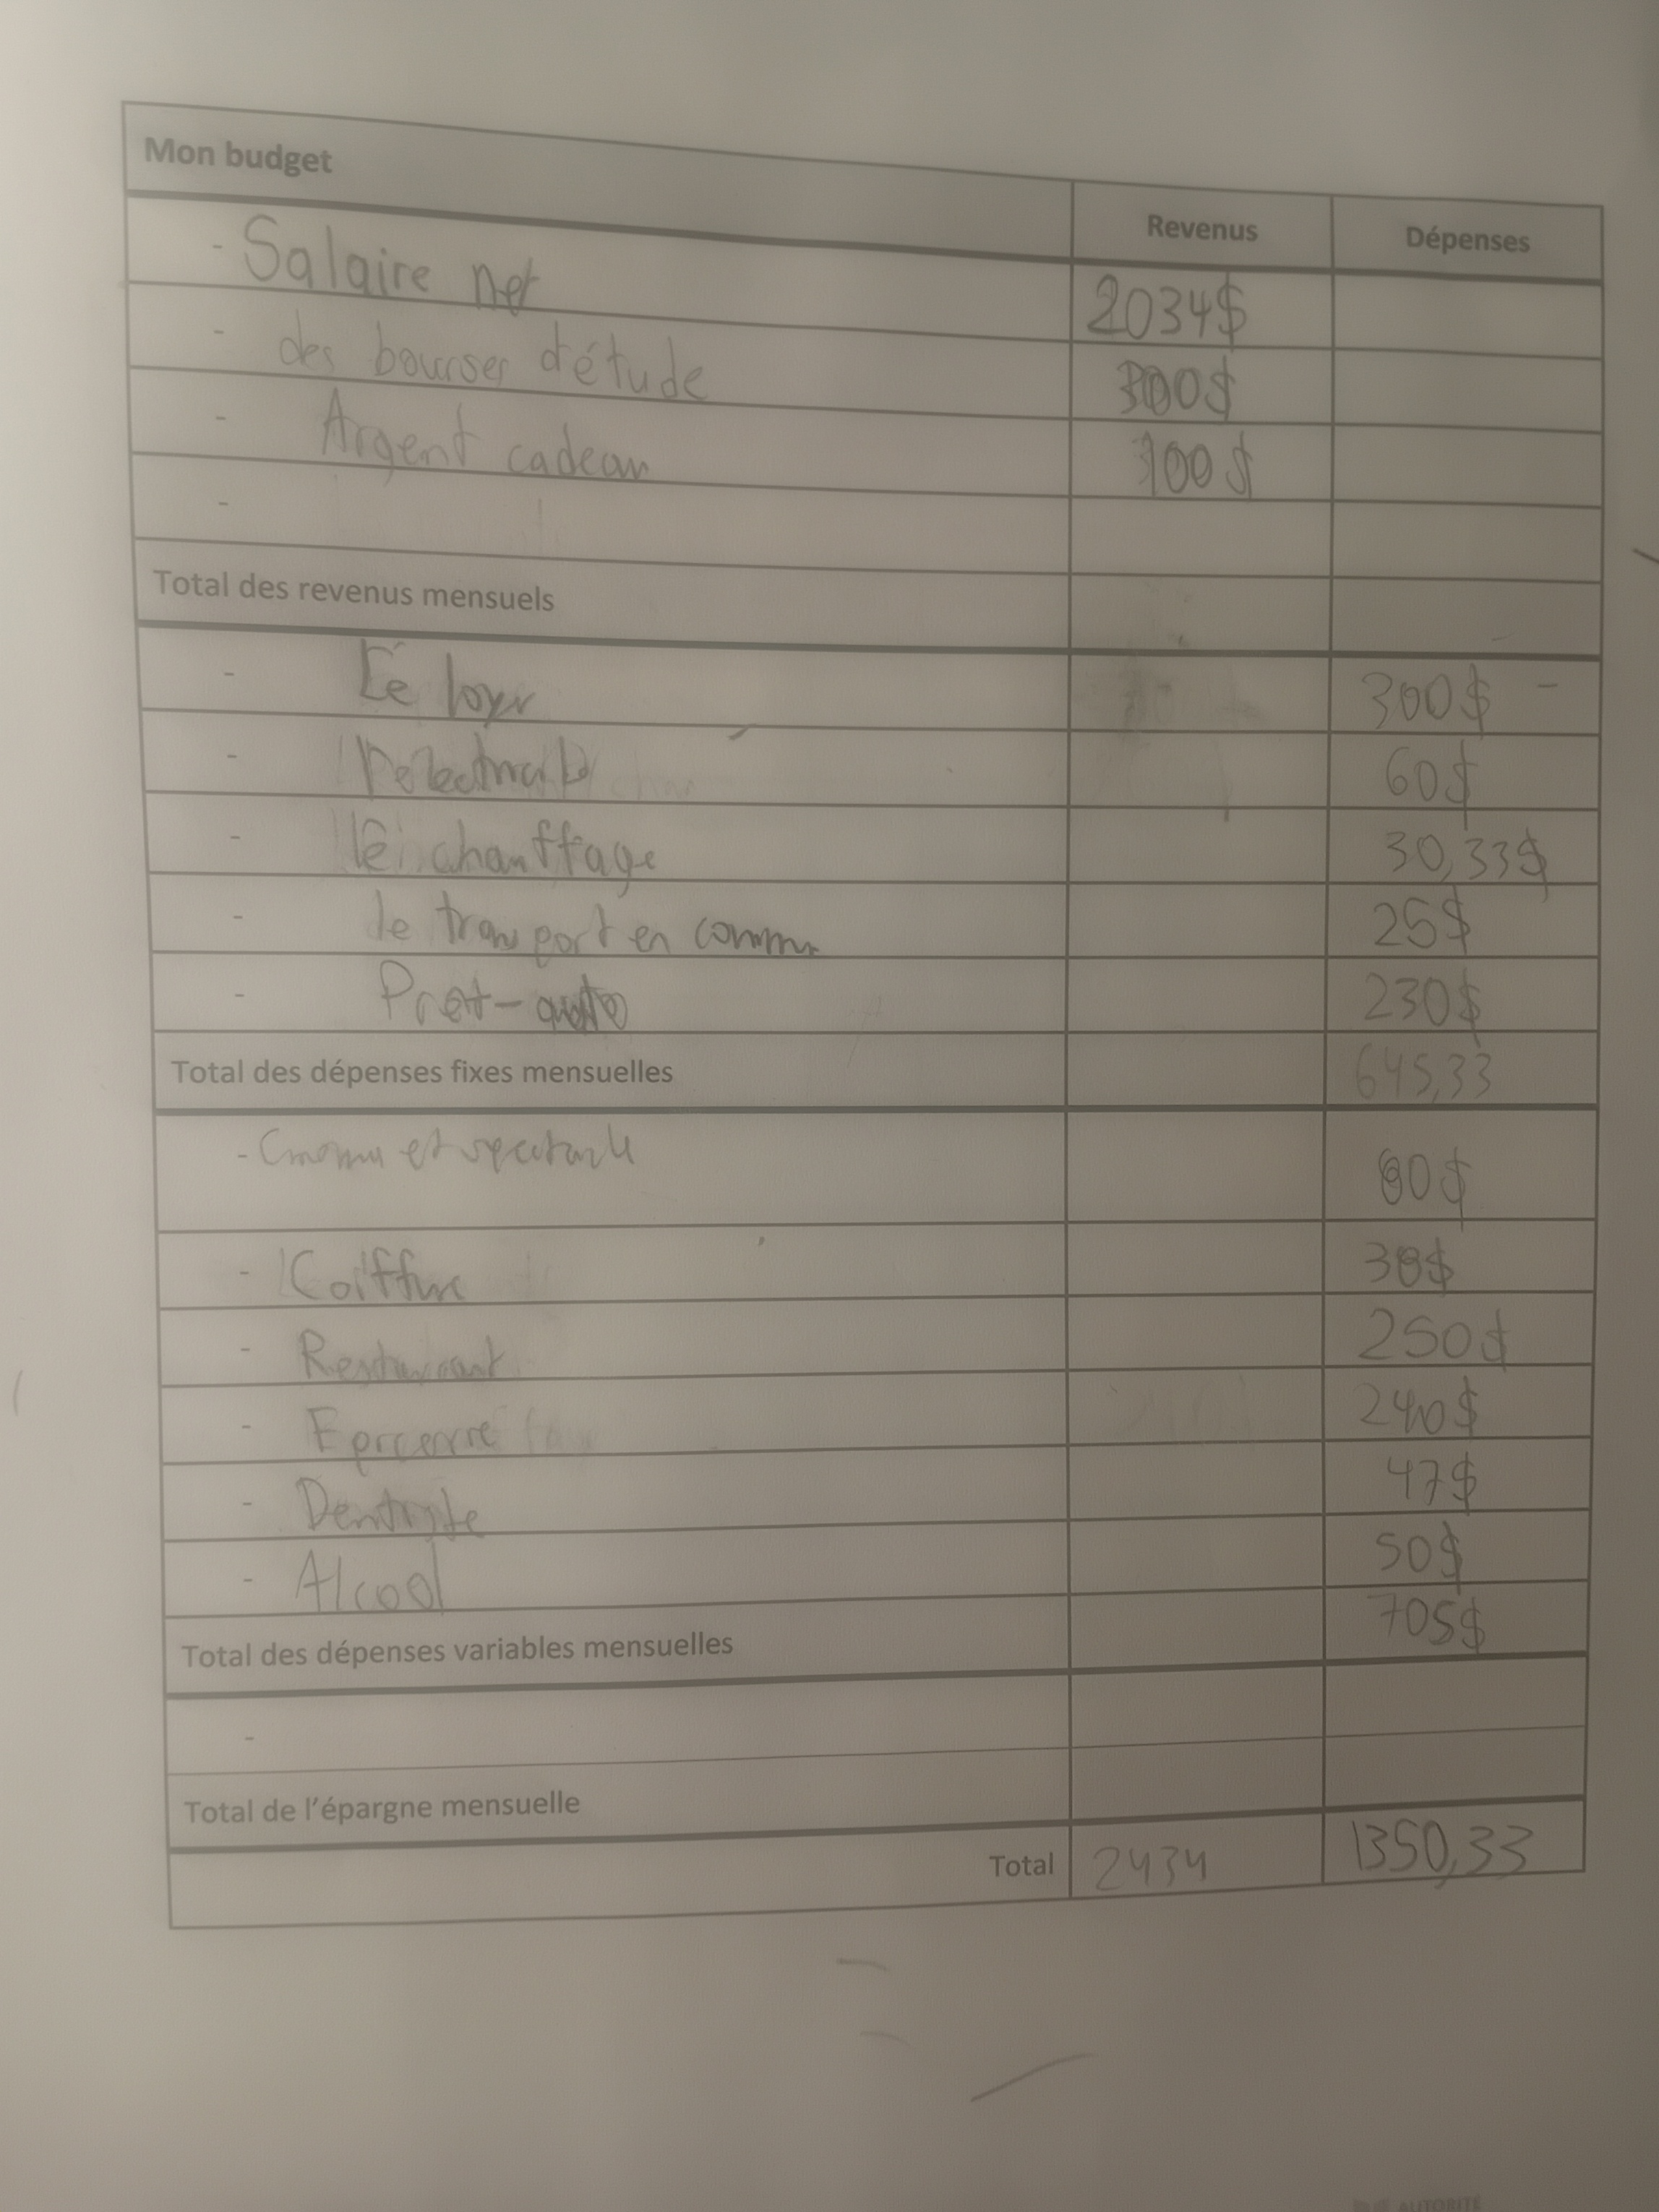 Mon budget Revenus Dépenses
- Salaire net 2034$
- des bourses d'étude 300$
- Argent cadeau 100$
-
Total des revenus mensuels
- Le loyer 300$ -
- 60$
- le chauffage 30,33$
- le transport en commun 25$
- Prêt-auto 230$
Total des dépenses fixes mensuelles 645,33
- et spectacle
- Coiffure
- Restaurant 250$
- Epicerie 240$
- Dentiste 47$
- Alcool 50$
Total des dépenses variables mensuelles 705$
-
Total de l'épargne mensuelle
Total 2434 1350,33
AUTORITÉ